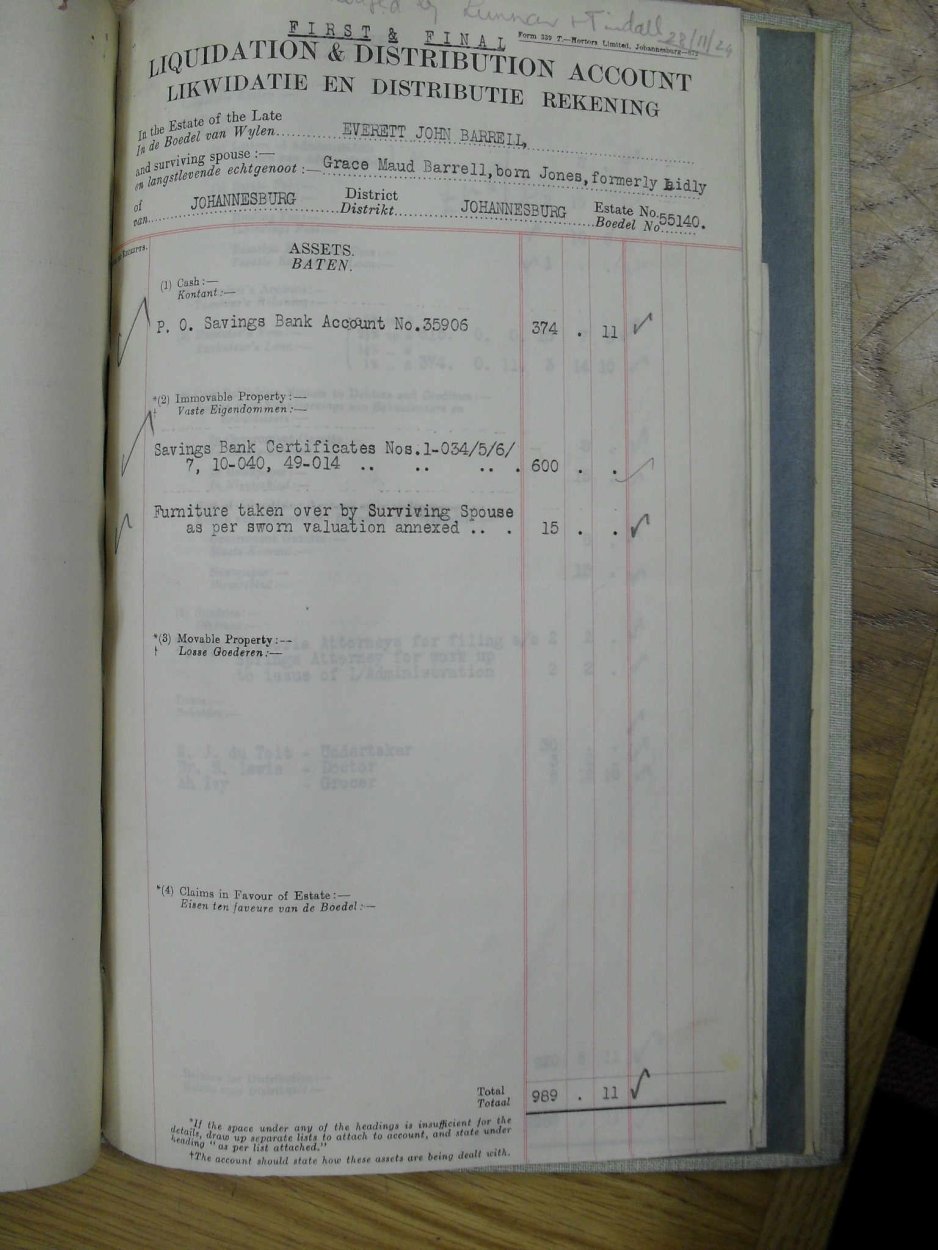 by Tindall 28/11/24
FIRST & FINAL
Form 339 T.—Hortors Limited, Johannesburg
LIQUIDATION & DISTRIBUTION ACCOUNT
LIKWIDATIE EN DISTRIBUTIE REKENING
In the Estate of the Late
In de Boedel van Wylen EVERETT JOHN BARRELL,
and surviving spouse :—
en langstlevende echtgenoot :— Grace Maud Barrell, born Jones, formerly Lidly
of JOHANNESBURG District JOHANNESBURG Estate No. 55140.
van Distrikt Boedel No
ASSETS.
BATEN.
(1) Cash :—
Kontant :—
P. O. Savings Bank Account No.35906 374 . 11
*(2) Immovable Property :—
† Vaste Eigendommen :—
Savings Bank Certificates Nos.1-034/5/6/
7, 10-040, 49-014 .. .. .. . 600 . .
Furniture taken over by Surviving Spouse
as per sworn valuation annexed .. . 15 . .
*(3) Movable Property :—
† Losse Goederen :—
Attorneys for filing a/c 2
Attorney for work up
to issue of L/Administration 2 2 .
du Toit - Undertaker 30
Dr. S. Lewis - Doctor
Ah Ivy - Grocer
*(4) Claims in Favour of Estate :—
Eisen ten faveure van de Boedel :—
Total
Totaal 989 . 11
*If the space under any of the headings is insufficient for the
details, draw up separate lists to attach to account, and state under
heading "as per list attached."
†The account should state how these assets are being dealt with.